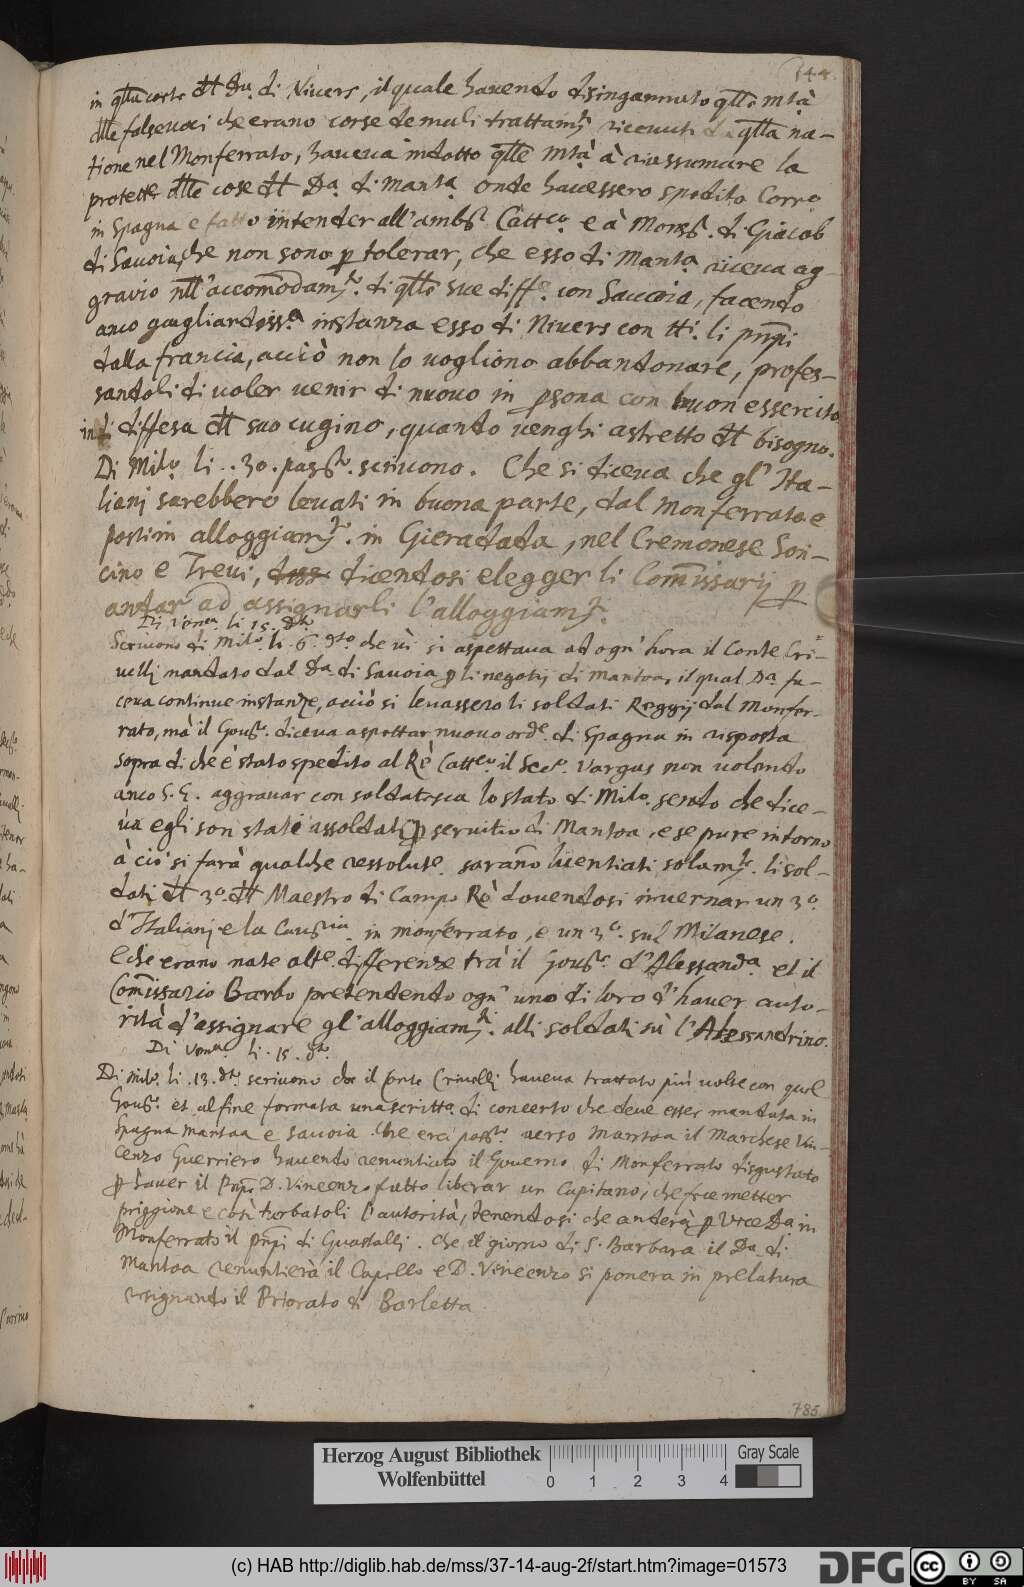 144.
in qlla corte dll Du. di Nivers, il quale havendo disingannato qlla mtà
dlle false voci che erano corse de muli trattamti ricevuti da qlla na-
tione nel Monferrato, haveva indotto qlle Mtà à riassumare la
protette dlle cose dll Da. di manta. onde havessero spedito Corro.
in Spagna e fatto intender all'ambr. Cattco. e à Monsr. di Giacob
di Savoia, che non sono p tolerar, che esso di Manta. riceva ag-
gravio nell'accomodamto. di qlle sue diffe. con Savoia, facendo
anco gagliardissa. instanza esso di Nivers con tti. li pnpi
dalla francia, acciò non lo vogliono abbandonare, profes-
sandoli di voler venir di nuovo in psona con buon essercito
in diffesa dll suo cugino, quando venghi astretto dll bisogno.
Di Milo. li . 30. passto. scrivono. Che si diceva che gl' Ita-
liani sarebbero levati in buona parte, dal Monferrato e
posti in alloggiamti. in Gieradada, nel Cremonese Son-
cino e Trevi, dicendosi elegger li Comissarij p
andar ad assignarli l'alloggiamto.
Di Vena. li 15. dto.
Scrivono di Milo. li. 6. dto. che iui si aspettava ad ogn' hora il Conte Cri-
velli mandato dal Da. di Savoia p li negotij di Mantoa, il qual Da. fa-
ceva continue instanze, acciò si levassero li soldati Reggij dal Monfer-
rato, mà il Gour. diceva aspettar nuovo orde. di Spagna in risposta
sopra di che è stato spedito al Rè Cattco. il Secro. Vargas non volendo
anco S. E. aggravar con soldatesca lo stato di Milo. sendo che dice-
va egli son stati assoldati p servitio di Mantoa, e se pure intorno
à ciò si farà qualche ressolute. sarano licentiati solamte. li sol-
dati dll 3o. dll Maestro di Campo Rò dovendosi invernar un 3o.
d'Italiani e la Cavria. in monferrato, e un 3o. sul Milanese.
e che erano nate alte. differenze trà il Gour. d'Alessanda. et il
Comissario Barbo pretendendo ogn' uno di loro d'haver auto-
rità d'assignare gl'alloggiamti. alli soldati sù l'Alessandrino.
Di Vena. li. 15. dto.
Di milo. li .13. dto. scrivono che il Conte Crivelli haveva trattato più volte con quel
Gour. et al fine formata una scritta. di concerto che deve esser mandata in
Spagna Mantoa e Savoia. Che erci passto. verso Mantoa il Marchese Vin-
cenzo Guerriero havendo renuntiato il Governo di Monferrato disgustato
p haver il Pnpe D. Vincenzo fatto liberar un Capitano, che fece metter
priggione e così turbatoli l'autorità, tenendosi che anderà p Vice Da. in
Monferrato il pnpi di Guastalli. che il giorno di S. Barbara il Da. di
Mantoa renuntierà il Capello e D. Vincenzo si ponera in prelatura
resignando il Priorato di Barletta
785
Herzog August Bibliothek
Wolfenbüttel
0 1 2 3 4
Gray Scale
(c) HAB http://diglib.hab.de/mss/37-14-aug-2f/start.htm?image=01573
DFG
cc BY SA